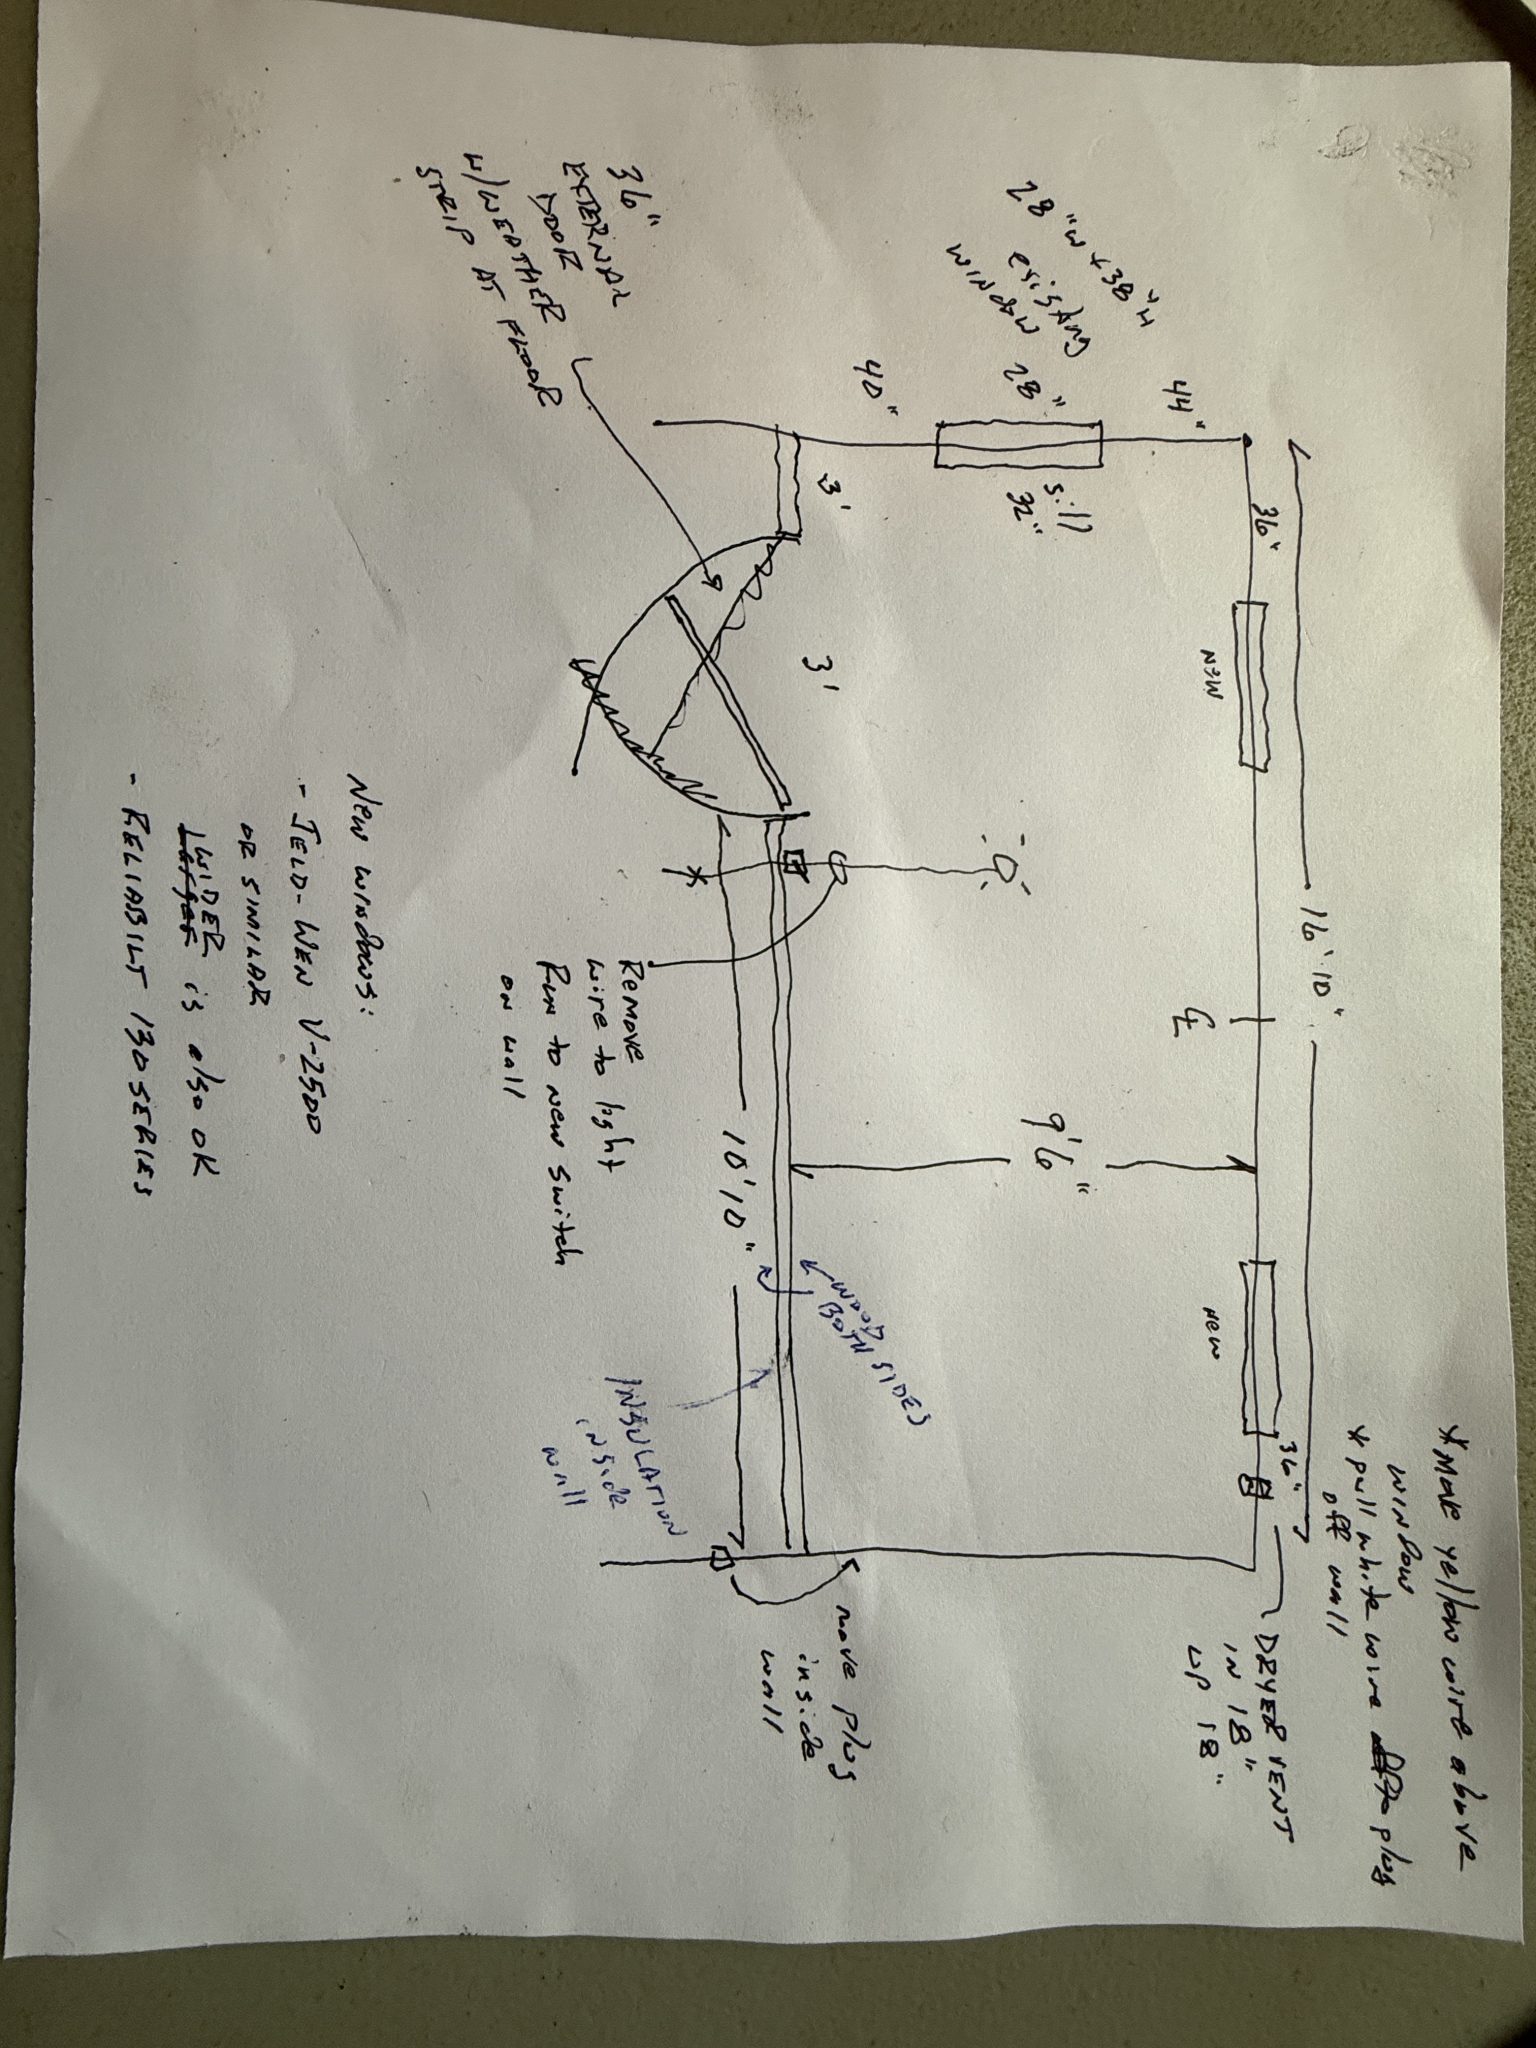 * Move yellow wire above
window
* pull white wire plug
off wall
16' 10"
36"
NEW
℄
NEW
36"
DRYER VENT
IN 18"
UP 18"
44"
28" W x 38" H
existing
window
28"
sill
32"
40"
9'6"
3'
3'
WOOD
BOTH SIDES
move plug
inside
wall
10' 10"
36"
EXTERNAL
DOOR
W/WEATHER
STRIP AT FLOOR
Remove
wire to light
Run to new switch
on wall
INSULATION
inside
wall
New windows:
- JELD-WEN V-2500
OR SIMILAR
WIDER is also OK
- RELIABILT 130 SERIES